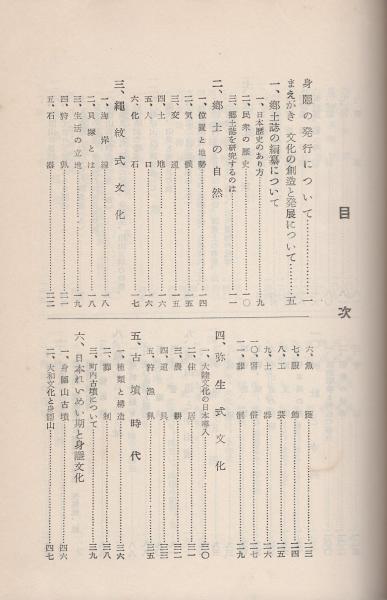 目次
身隠の発行について…………一
まえがき 文化の創造と発展について……五
一、郷土誌の編纂について
一、日本歴史のあり方…………九
二、民衆の歴史…………一〇
三、郷土誌を研究するのは
二、郷土の自然
一、位置と地勢…………一四
二、気候…………一五
三、交通…………一五
四、土地…………一六
五、人口…………一六
六、化石…………一七
三、縄紋式文化
一、海岸線…………一八
二、貝塚とは…………一八
三、生活の立地…………一九
四、狩猟…………二一
五、石器…………二二
六、魚撈…………二三
七、服飾…………二四
八、工芸…………二五
九、土器…………二六
一〇、習俗…………二七
一一、葬儀…………二九
四、弥生式文化
一、大陸文化の日本導入…………三〇
二、住居…………三一
三、農耕…………三二
四、道具…………三三
五、狩漁猟…………三五
五、古墳時代
一、種類と構造…………三六
二、葬制…………三八
三、町内古墳について…………三九
六、日本れいめい期と身隠文化
一、身隠山古墳…………四六
二、大和文化と身隠山…………四七